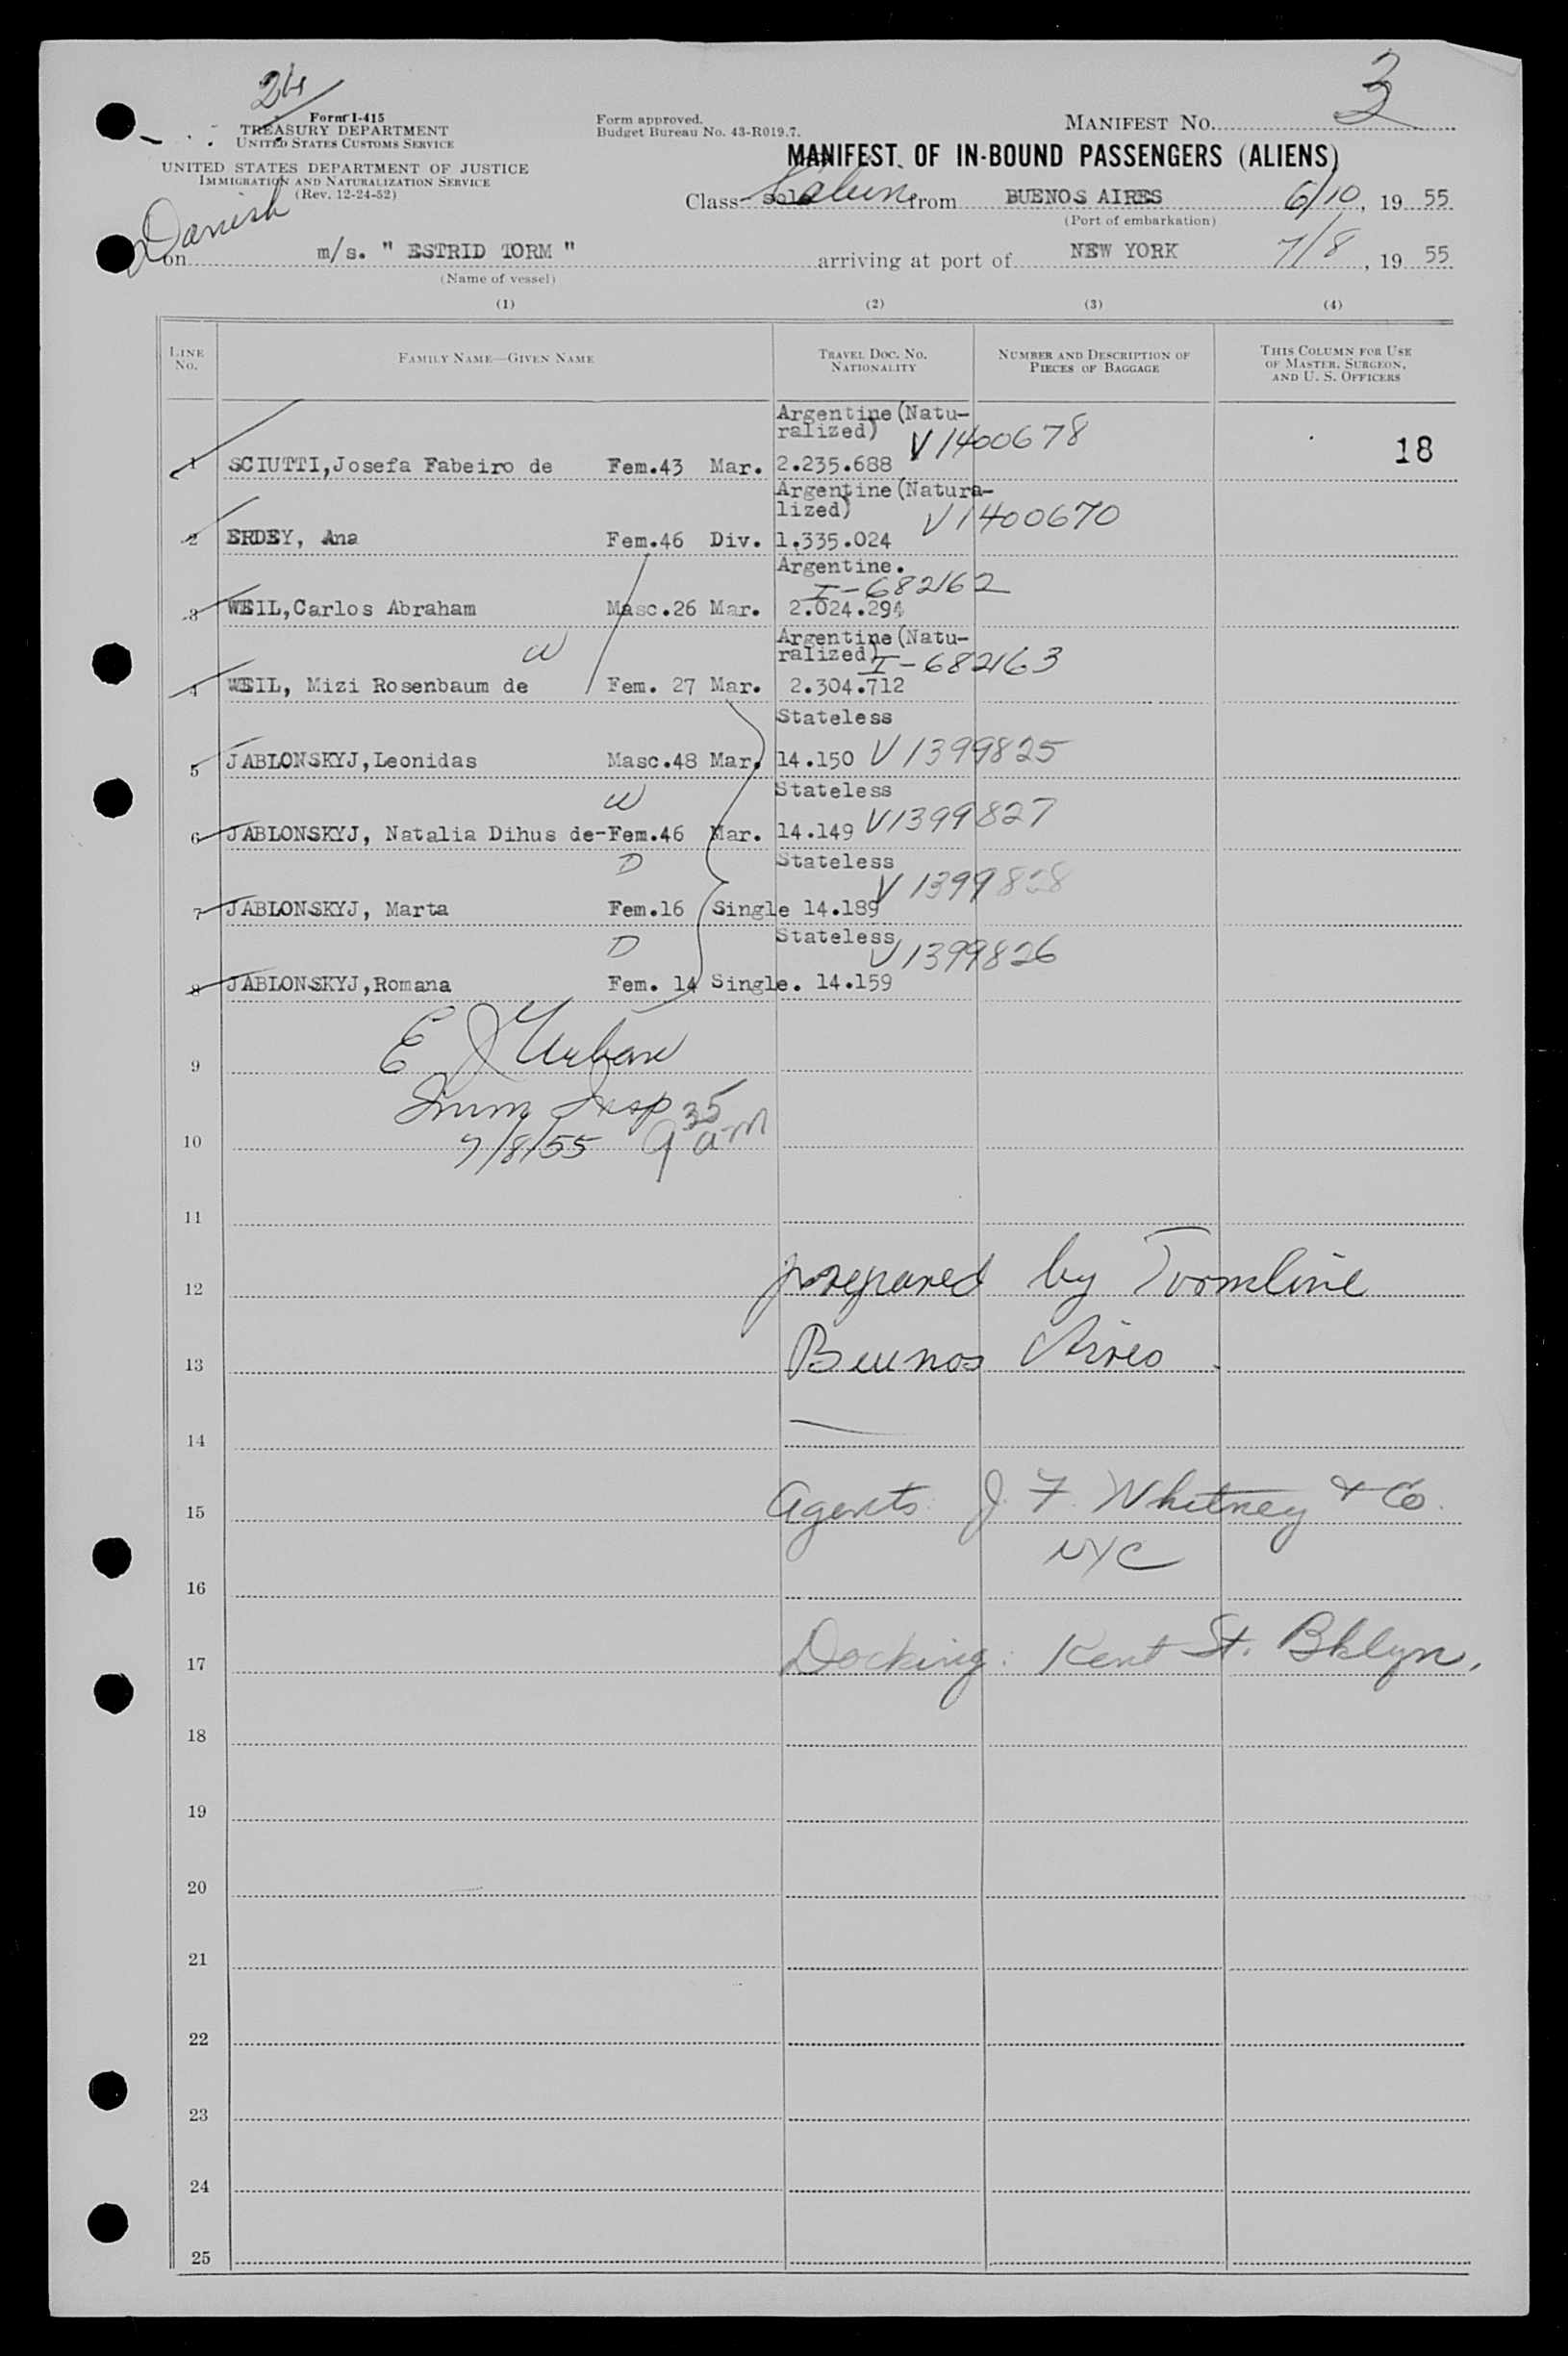 24
3
Form I-415
TREASURY DEPARTMENT
UNITED STATES CUSTOMS SERVICE
UNITED STATES DEPARTMENT OF JUSTICE
IMMIGRATION AND NATURALIZATION SERVICE
(Rev. 12-24-52)
Form approved.
Budget Bureau No. 43-R019.7.
MANIFEST NO.
MANIFEST OF IN-BOUND PASSENGERS (ALIENS)
Class Cabin from BUENOS AIRES 6/10, 19 55
(Port of embarkation)
Danish
on m/s. " ESTRID TORM " arriving at port of NEW YORK 7/8, 19 55
(Name of vessel)
(1) (2) (3) (4)
LINE NO. FAMILY NAME—GIVEN NAME TRAVEL DOC. NO. NATIONALITY NUMBER AND DESCRIPTION OF PIECES OF BAGGAGE THIS COLUMN FOR USE OF MASTER, SURGEON, AND U. S. OFFICERS
Argentine(Natu-
ralized) V1400678
1 SCIUTTI,Josefa Fabeiro de Fem.43 Mar. 2.235.688 18
Argentine(Natura-
lized) V1400670
2 ERDEY, Ana Fem.46 Div. 1.335.024
Argentine.
I-682162
3 WEIL,Carlos Abraham Masc.26 Mar. 2.024.294
Argentine(Natu-
ralized) I-682163
W
4 WEIL, Mizi Rosenbaum de Fem. 27 Mar. 2.304.712
Stateless
5 JABLONSKYJ,Leonidas Masc.48 Mar. 14.150 V1399825
Stateless
W
6 JABLONSKYJ, Natalia Dihus de-Fem.46 Mar. 14.149 V1399827
Stateless
D V1399828
7 JABLONSKYJ, Marta Fem.16 Single 14.189
Stateless
D V1399826
8 JABLONSKYJ,Romana Fem. 14 Single. 14.159
E J Urban
9
Imm Insp
10 7/8/55 9 35 am
11
12 prepared by Tormline
13 Buenos Aires.
14
15 Agents: J. F. Whitney & Co.
NYC
16
17 Docking: Kent St. Bklyn.
18
19
20
21
22
23
24
25